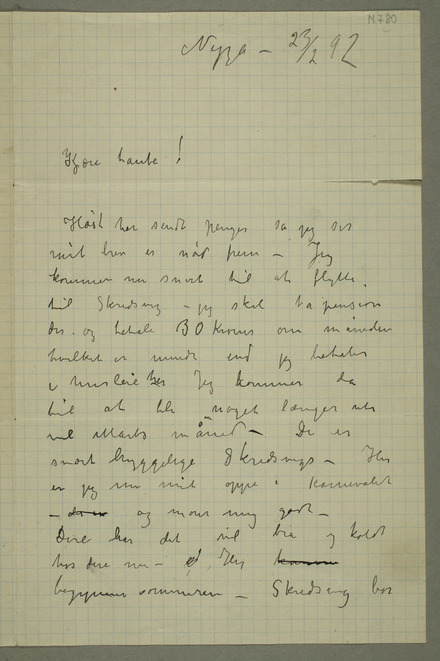 N780
Nizza – 23/2 92
Kjære tante!
Høst har sendt penger så jeg ser
mit brev er nåd frem – Jeg
kommer nu snart til at flytte
til Skredsvig – jeg skal ta pension
der og betale 80 Kroner om måneden
hvilket er mindre end jeg betaler
i husleie her Jeg kommer da
til at bli noget længer ude
vel Marts måned – De er
snart hyggelige Skredsvigs – Her
er jeg nu mit oppe i Karnevalet
– og morer mig godt –
Dere har det vel bra og koldt
hos dere nu – Her
begynner sommeren – Skredsvig bor